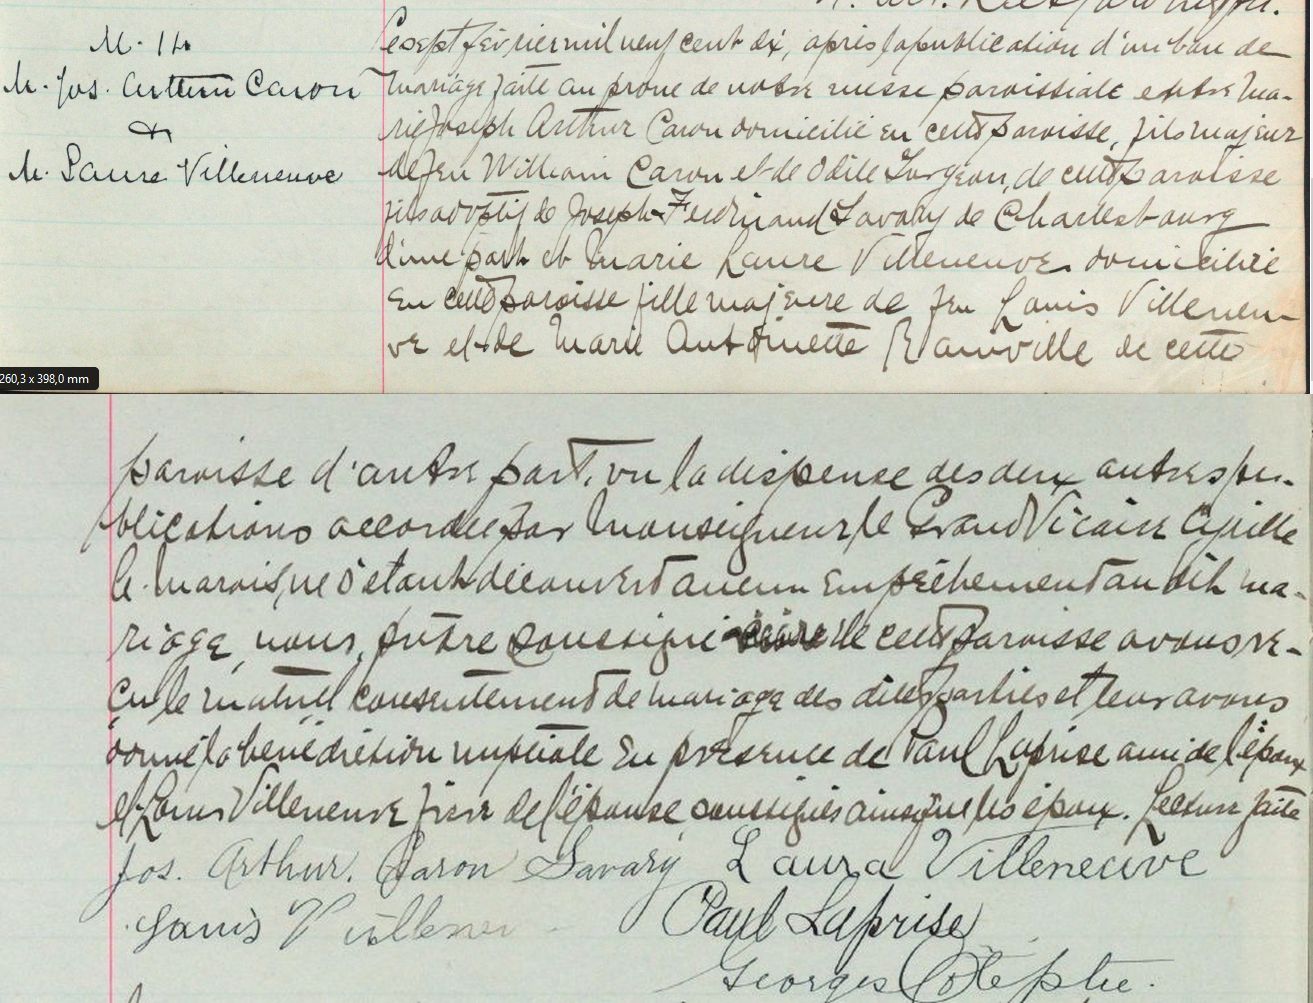 M. 14
M. Jos. Arthur Caron
&
M. Laure Villeneuve
Le sept février mil neuf cent dix, après la publication d'un ban de
mariage faite au prone de notre messe paroissiale entre Ma-
rie Joseph Arthur Caron domicilié en cette paroisse, fils majeur
de feu William Caron et de Odile Turgeon, de cette paroisse
fils adoptif de Joseph Ferdinand Savary de Charlesbourg
d'une part et Marie Laure Villeneuve domiciliée
en cette paroisse fille majeure de feu Louis Villeneu-
ve et de Marie Antoinette Rainville de cette
260,3 x 398,0 mm
paroisse d'autre part, vu la dispense des deux autres pu-
blications accordée par Monseigneur le Grand Vicaire Cyrille
Le Marois, ne s'étant découvert aucun empêchement au dit ma-
riage, nous, prêtre soussigné de cette paroisse avons re-
çu le mutuel consentement de mariage des dites parties et leur avons
donné la bénédiction nuptiale en présence de Paul Laprise ami de l'époux
et Louis Villeneuve frère de l'épouse soussignés ainsi que les époux. Lecture faite
Jos. Arthur. Caron Savary Laura Villeneuve
Louis Villeneu
Paul Laprise
Georges Côté ptre.